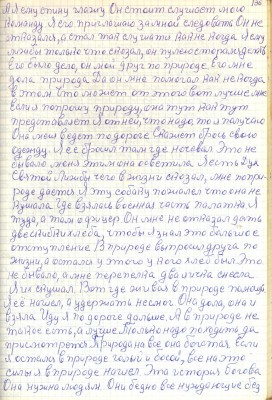 136
Я ему спину глажу, Он стоит слушает мою
команду Я его приглашаю за мной следовать Он не
отказался, а стал так слушать как не когда Я ему
лишь только что сказал, он
Его было дело, он мой друг по природе Его мне
дала природа Да он мне помогал как не когда
в этом. Что может от этого вот лучше мне
Если я попрошу природу, она тут как тут
представляет Я от ней что надо, то я получаю
Она мои ведет по дороге Скажет брось свою
одежду Я её бросил там где ночевал. Это не
бывало меня этим она осветила. Я есть Дух
Святой Лишь чего в жизни сказал, мне по при-
роде дается Я ту собаку пожалел что она не
кушала. Где взялась военная часть палатка Я
туда, а там офицер. Он мне не отказал дать
две скибки хлеба, чтобы я знал это большое с
отступление. В природе выпросил друга по
жизни, а остался у этого у кого хлеб был. Это
не бывало, а мне перепелка два яичка снесла
Я их скушал. Вот где жи вая в природе помощь
Я её нашел, а удержать не смог. Она дала, она и
взяла. Иду я по дороге дальше. А в природе не
такое есть, а лучше. Только надо походить да
присмотрется. Природа на все она богатая. Если
я остался в природе голый и босой, все на это
силы я в природе нашел. Это история богова
Она нужна людям. Они бедно все нуждающие без